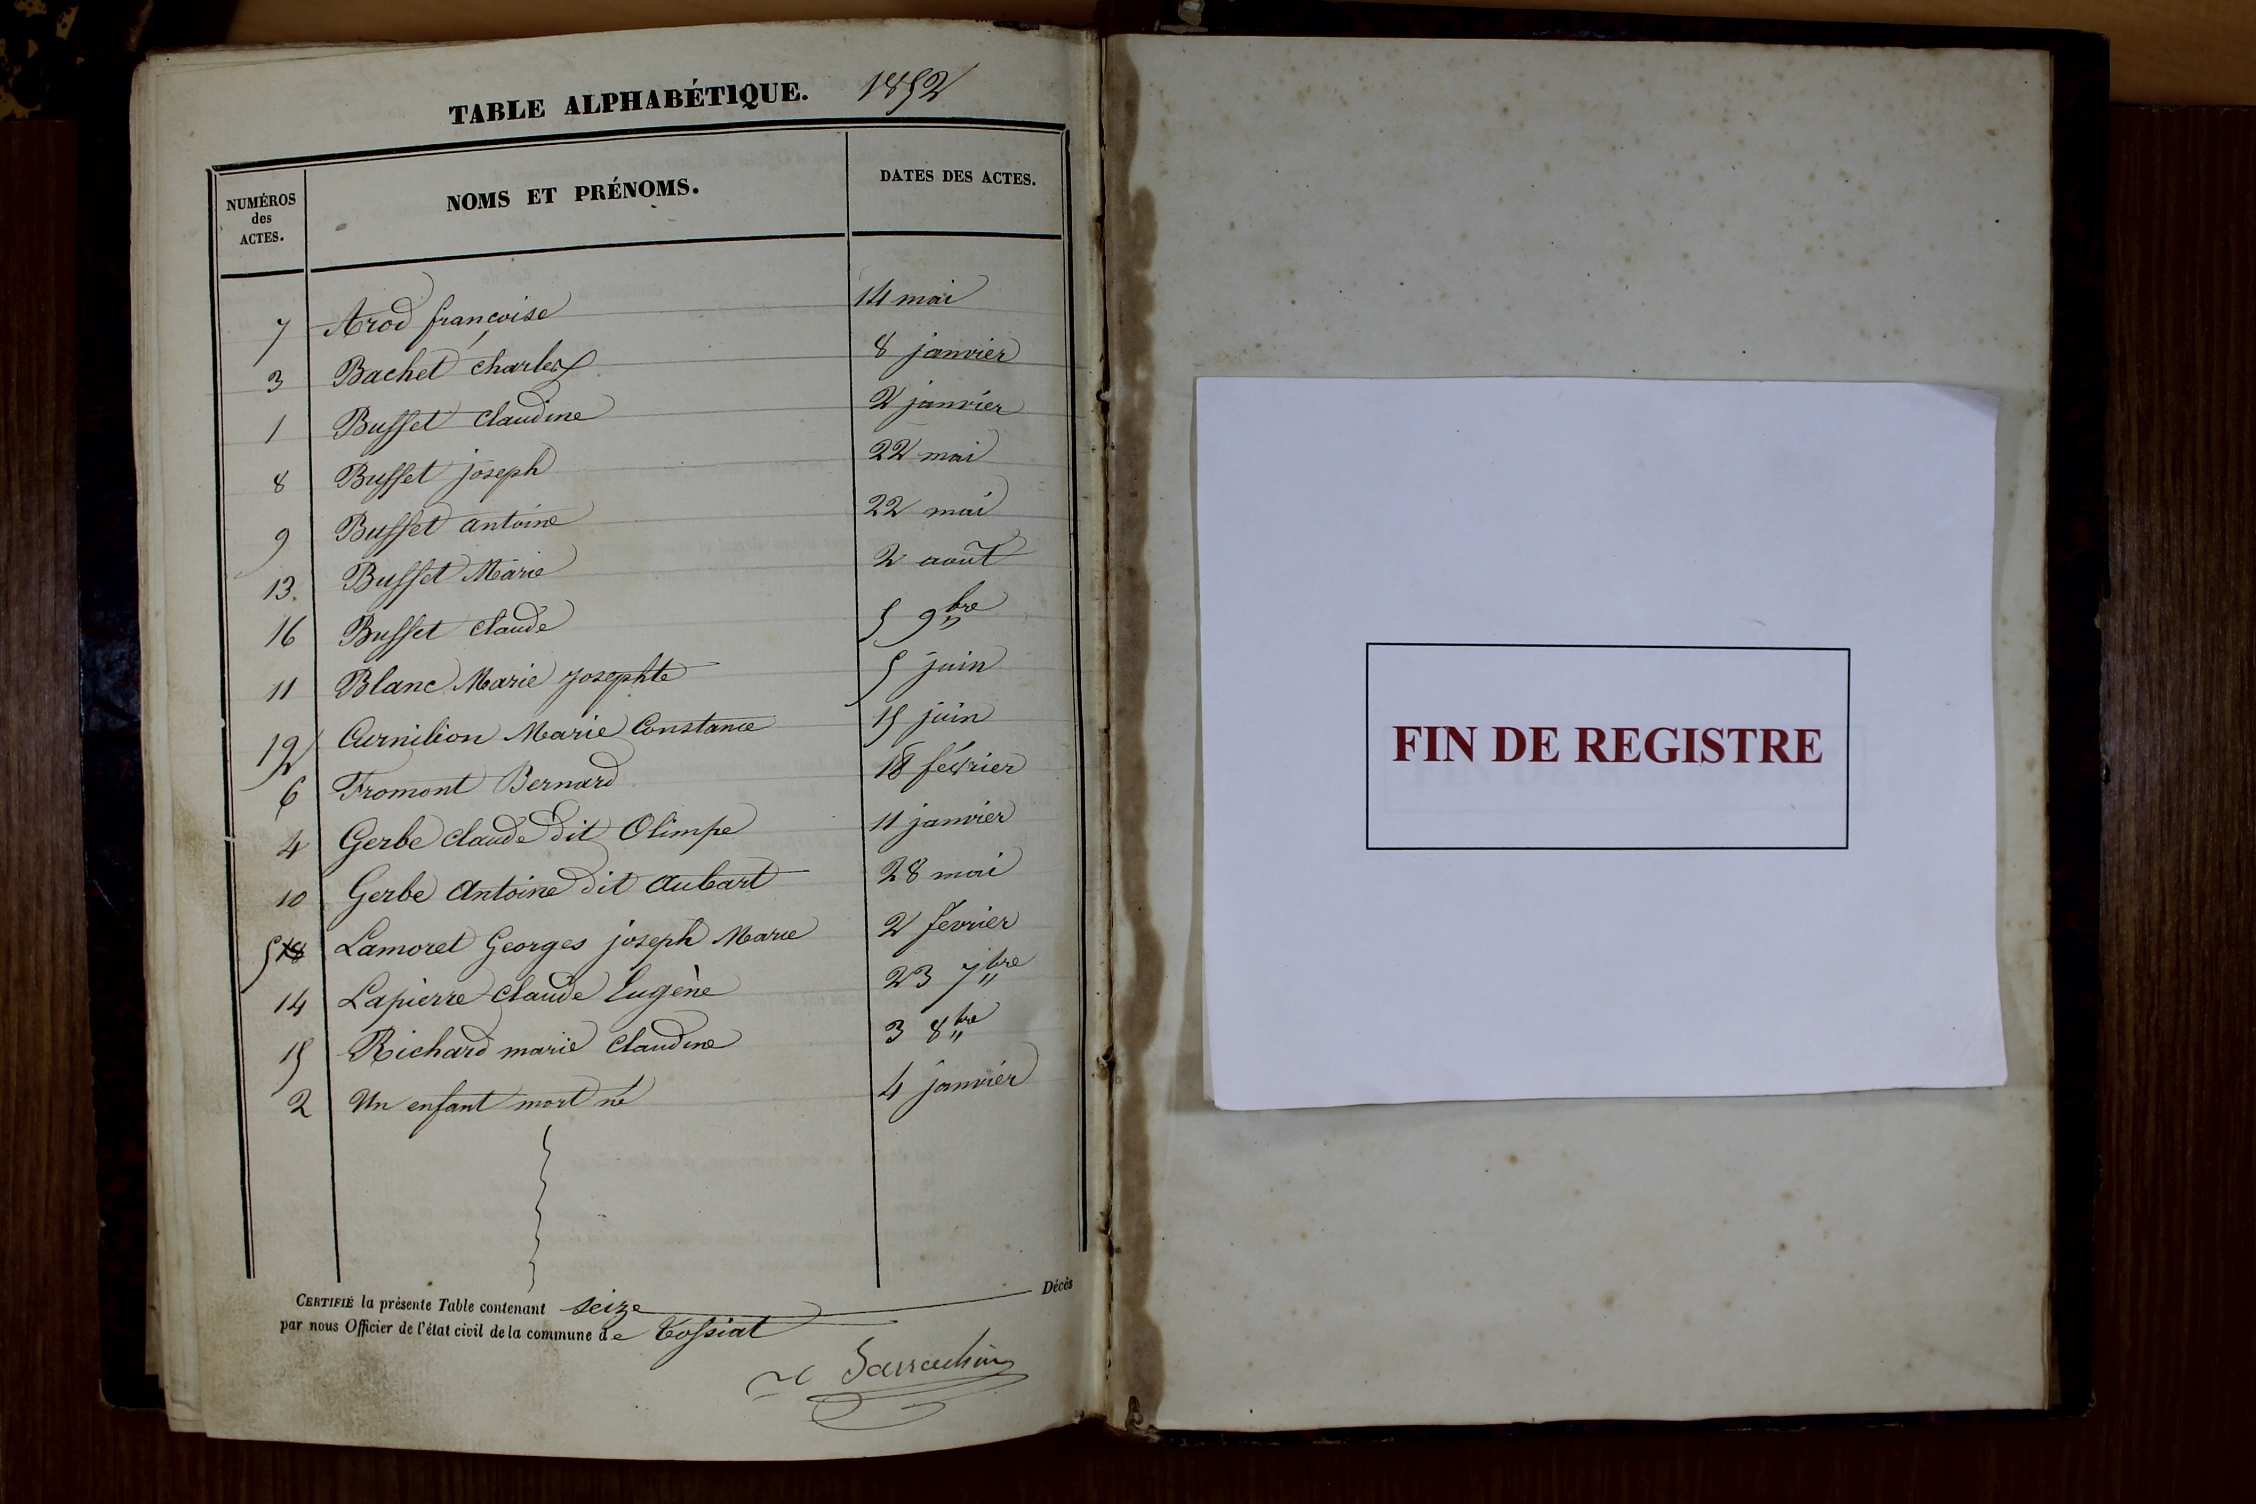 TABLE ALPHABÉTIQUE. 1852
NUMÉROS des ACTES. NOMS ET PRÉNOMS. DATES DES ACTES.
7 Arod françoise 14 mai
3 Bachet charles 8 janvier
1 Buffet claudine 2 janvier
8 Buffet joseph 22 mai
9 Buffet antoine 22 mai
13. Buffet Marie 2 août
16 Buffet claude 5 9bre
11 Blanc Marie josephte 5 juin
12 Curnilion Marie Constance 15 juin
6 Fromont Bernard 18 février
4 Gerbe claude dit Olimpe 11 janvier
10 Gerbe Antoine dit Aubart 28 mai
5 Lamoret Georges joseph Marie 2 fevrier
14 Lapierre claude Eugène 23 7bre
15 Richard marie claudine 3 8bre
2 Un enfant mort né 4 janvier
CERTIFIÉ la présente Table contenant seize Décès
par nous Officier de l'état civil de la commune de Tossiat
FIN DE REGISTRE